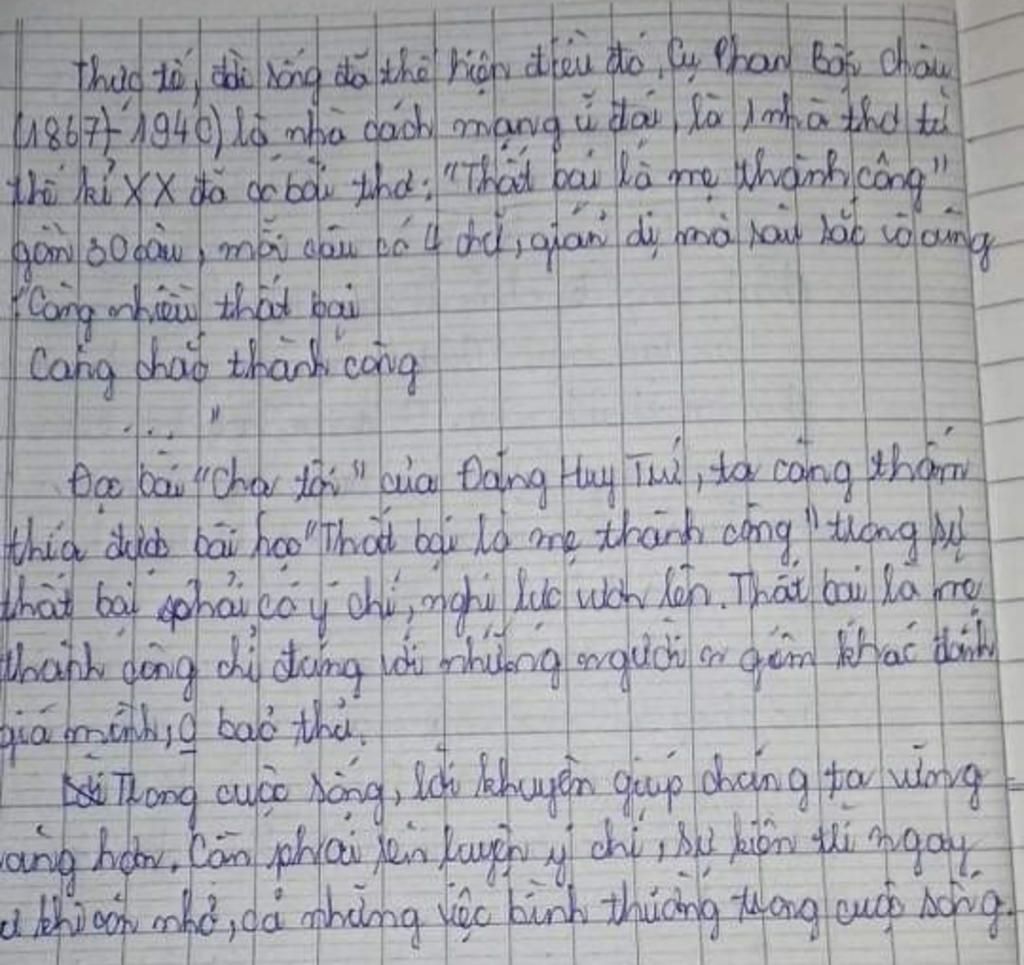 Thực tế, đời sống đã thể hiện điều đó. Cụ Phan Bội Châu
(1867-1940) là nhà cách mạng vĩ đại, là 1 nhà thơ từ
thế kỉ XX đã có bài thơ: "Thất bại là mẹ thành công"
gồm 30 câu, mỗi câu có 4 chữ, giản dị mà sâu sắc vô cùng
"Càng nhiều thất bại
Càng chắc thành công
...."
Đọc bài "Cha tôi" của Đặng Huy Trứ, ta càng thấm
thía được bài học "Thất bại là mẹ thành công" trong sự
thất bại phải có ý chí, nghị lực vươn lên. Thất bại là mẹ
thành công chỉ đúng với những người khác đánh
giá mình, bảo thủ.
Trong cuộc sống, lời khuyên giúp chúng ta vững
vàng hơn. Cần phải rèn luyện ý chí, sự kiên trì ngay
khi còn nhỏ, cả những việc bình thường trong cuộc sống.